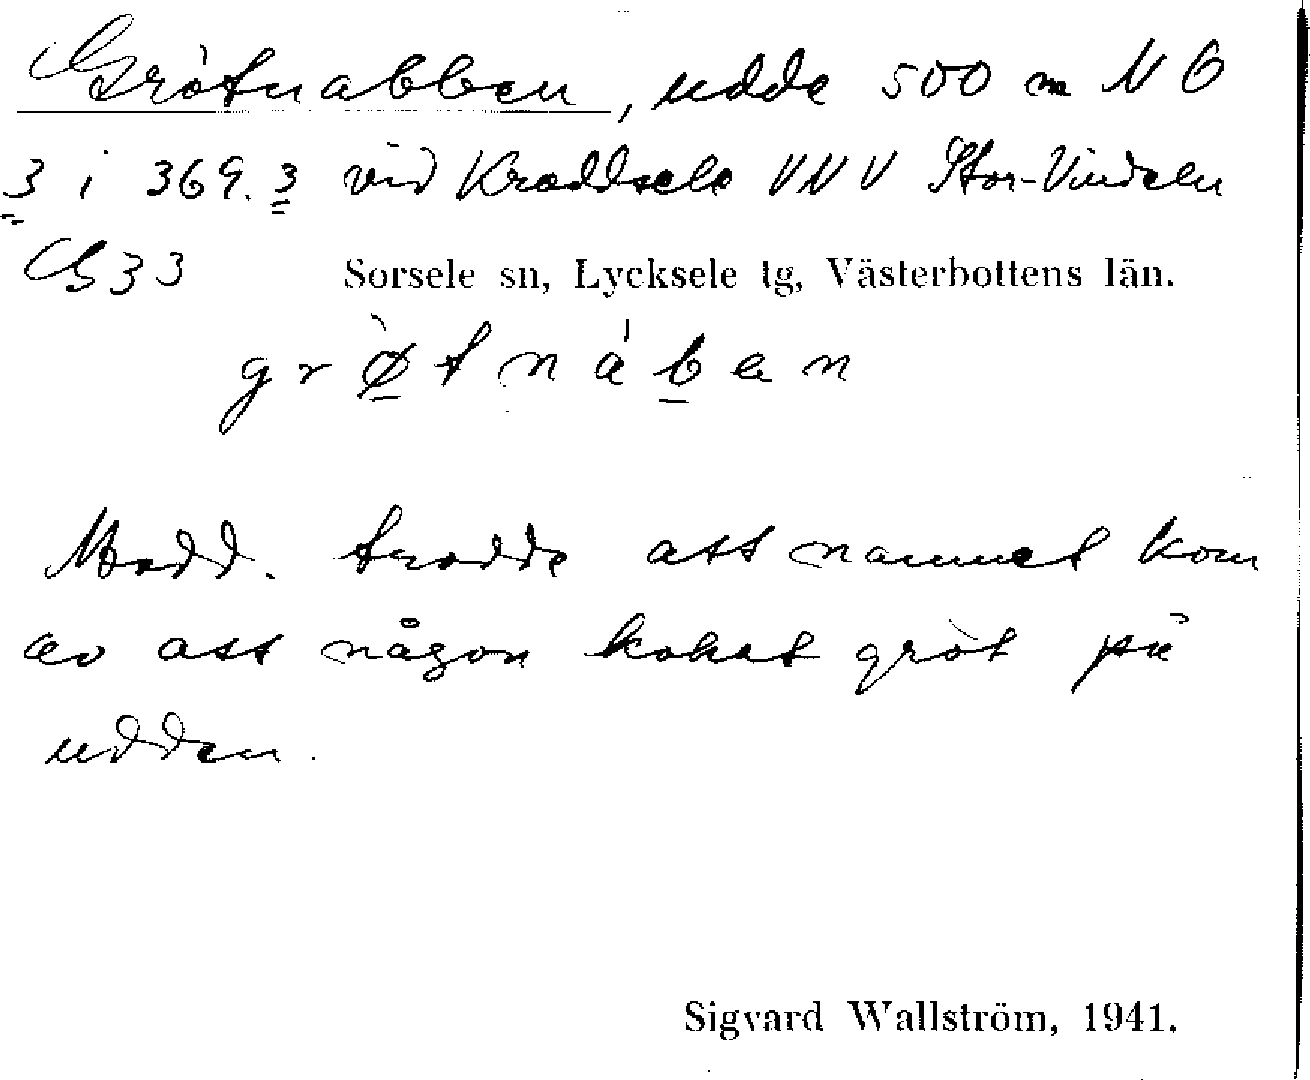 Grötnabben, udde 500 m NO
3 i 369.3 vid Kraddsele VNV Stor-Vindeln
G33
Sorsele sn, Lycksele tg, Västerbottens län.
grø̀tnában
Medd. trodde att namnet kom
av att någon kokat gröt på
udden.
Sigvard Wallström, 1941.